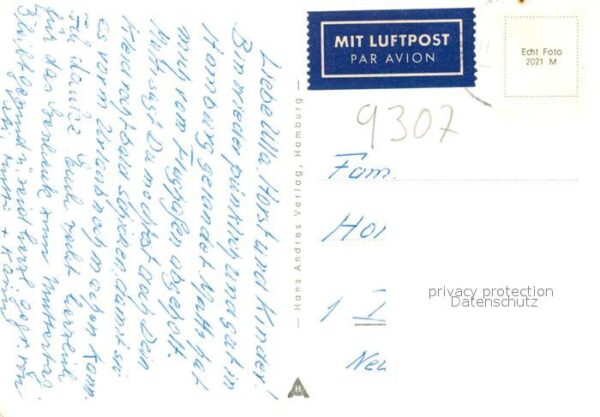 Liebe Ulla, Horst und Kinder!
Bin wieder pünktlich und gut in
Hamburg gelandet. Mutti hat
mich vom Flughafen abgeholt.
Mutti sagt Du möchtest auch Dein
schicken, damit sie
es vom Urlaub noch machen kann.
Ich danke Euch recht herzlich
für das Geschenk zum Muttertag.
und seid herzl. gegr. von
Mutti + Karin
MIT LUFTPOST
PAR AVION
Echt Foto
2021 M
9307
— Hans Andres Verlag, Hamburg —
Fam.
Hor
privacy protection
Datenschutz
1 1
Neu
H